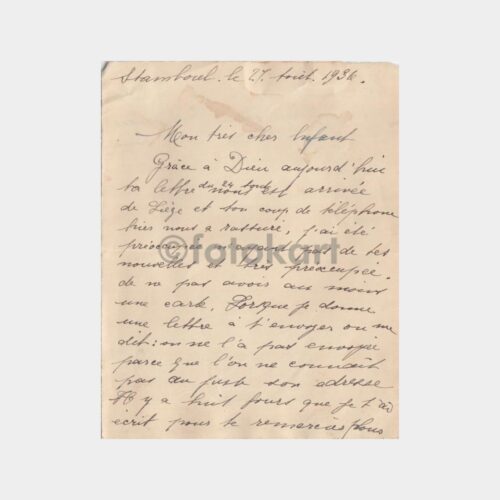 Stamboul. le 27. Août. 1936.
Mon très cher Enfant
Grâce à Dieu aujourd'hui
ta lettre du 24 Août nous est arrivée
de Liège et ton coup de téléphone
hier nous a rassuré, j'ai été
préoccupée n'ayant pas de tes
nouvelles et très préoccupée.
de ne pas avoir au moins
une carte, Lorque je donne
une lettre à t'envoyer on me
dit: on ne l'a pas envoyée
parce que l'on ne connait
pas au juste son adresse
Il y a huit jours que je t'ai
écrit pour te remercier
©fotokart